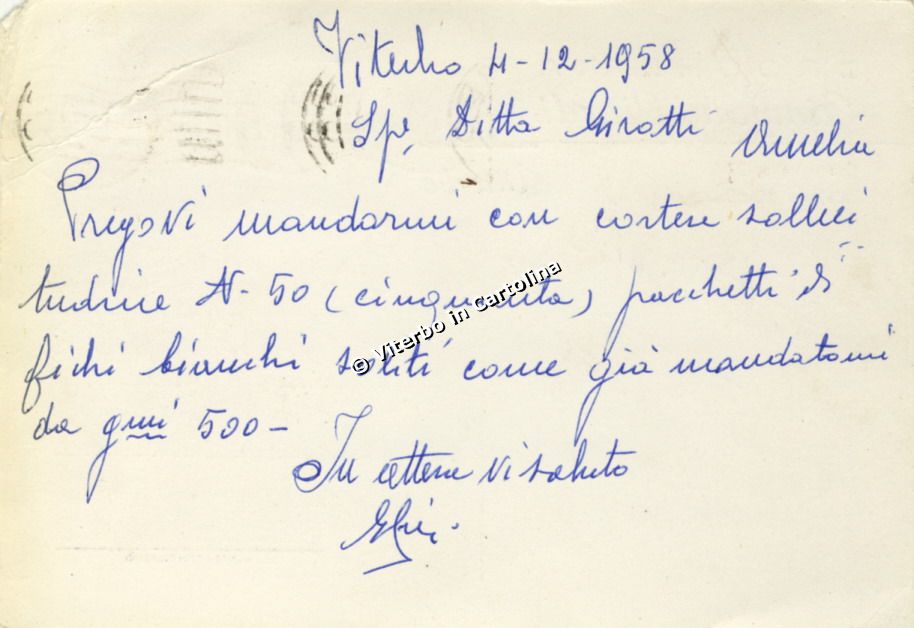 Viterbo 4-12-1958
Spe, Ditta Girotti Amelia
Pregovi mandarmi con cortese solleci
tudine N- 50 (cinquanta) pacchetti di
fichi bianchi soliti come già mandatomi
da gmi 500-
In attesa vi saluto
© Viterbo in Cartolina